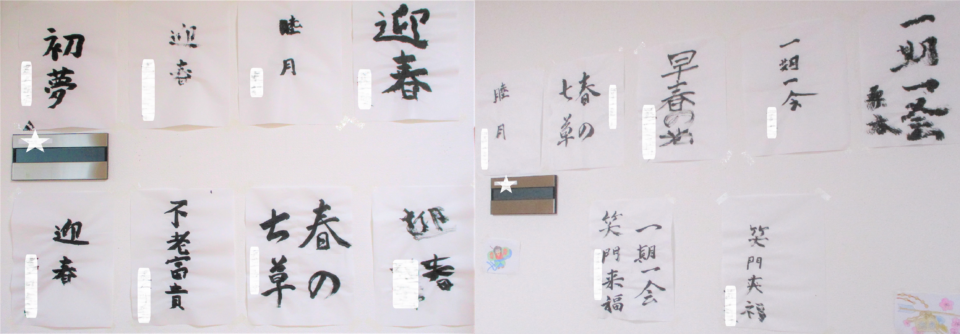 初夢
迎春
睦月
迎春
迎春
不老富貴
春の
七草
迎春
睦月
春の
七草
早春の
一期一会
一期一会
一期一会
笑門来福
笑門来福